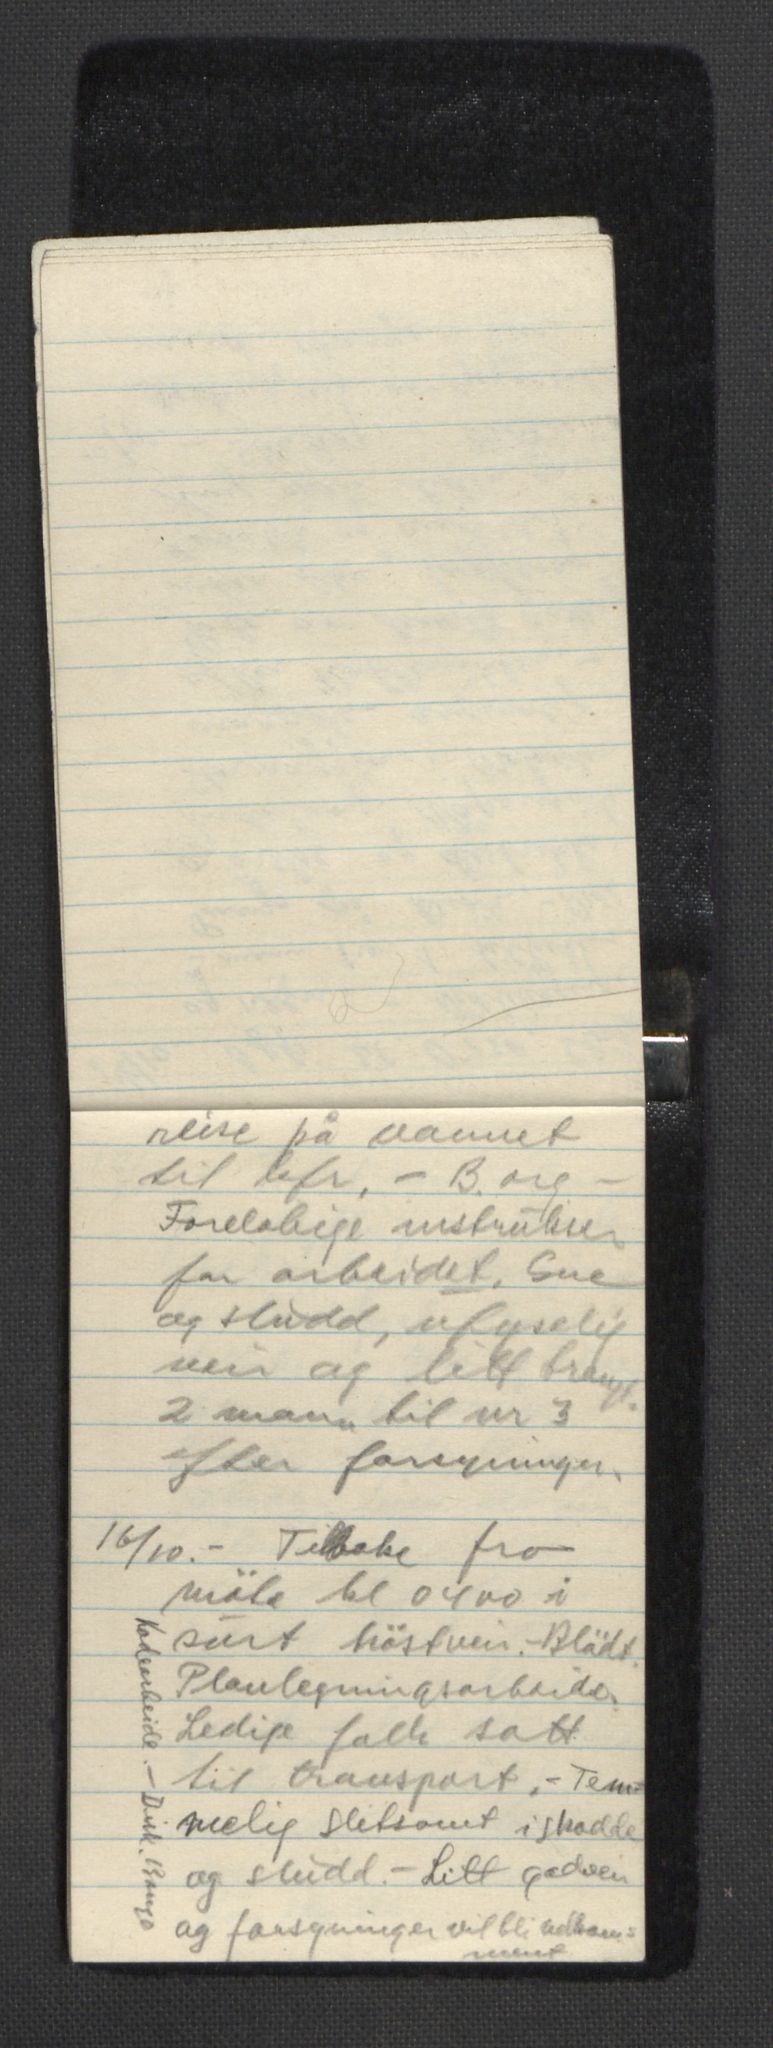 reise på vannet
til kfr, - B. org -
Foreløbige instrukser
for arbeidet. Sne
og sludd, ufyselig
veir og litt trangt.
2 mann til nr 3
efter forsyninger.
16/10.- Tilbake fra
möte kl 0400 i
surt höstveir. - Blödt.
Planlegningsarbeide.
Ledige folk satt
til transport. - Tem=
melig slitsomt i skodde
og sludd. - Litt godveir
og forsyninger vil bli velkom=
ment
Kodearbeide. - Disk. Bango